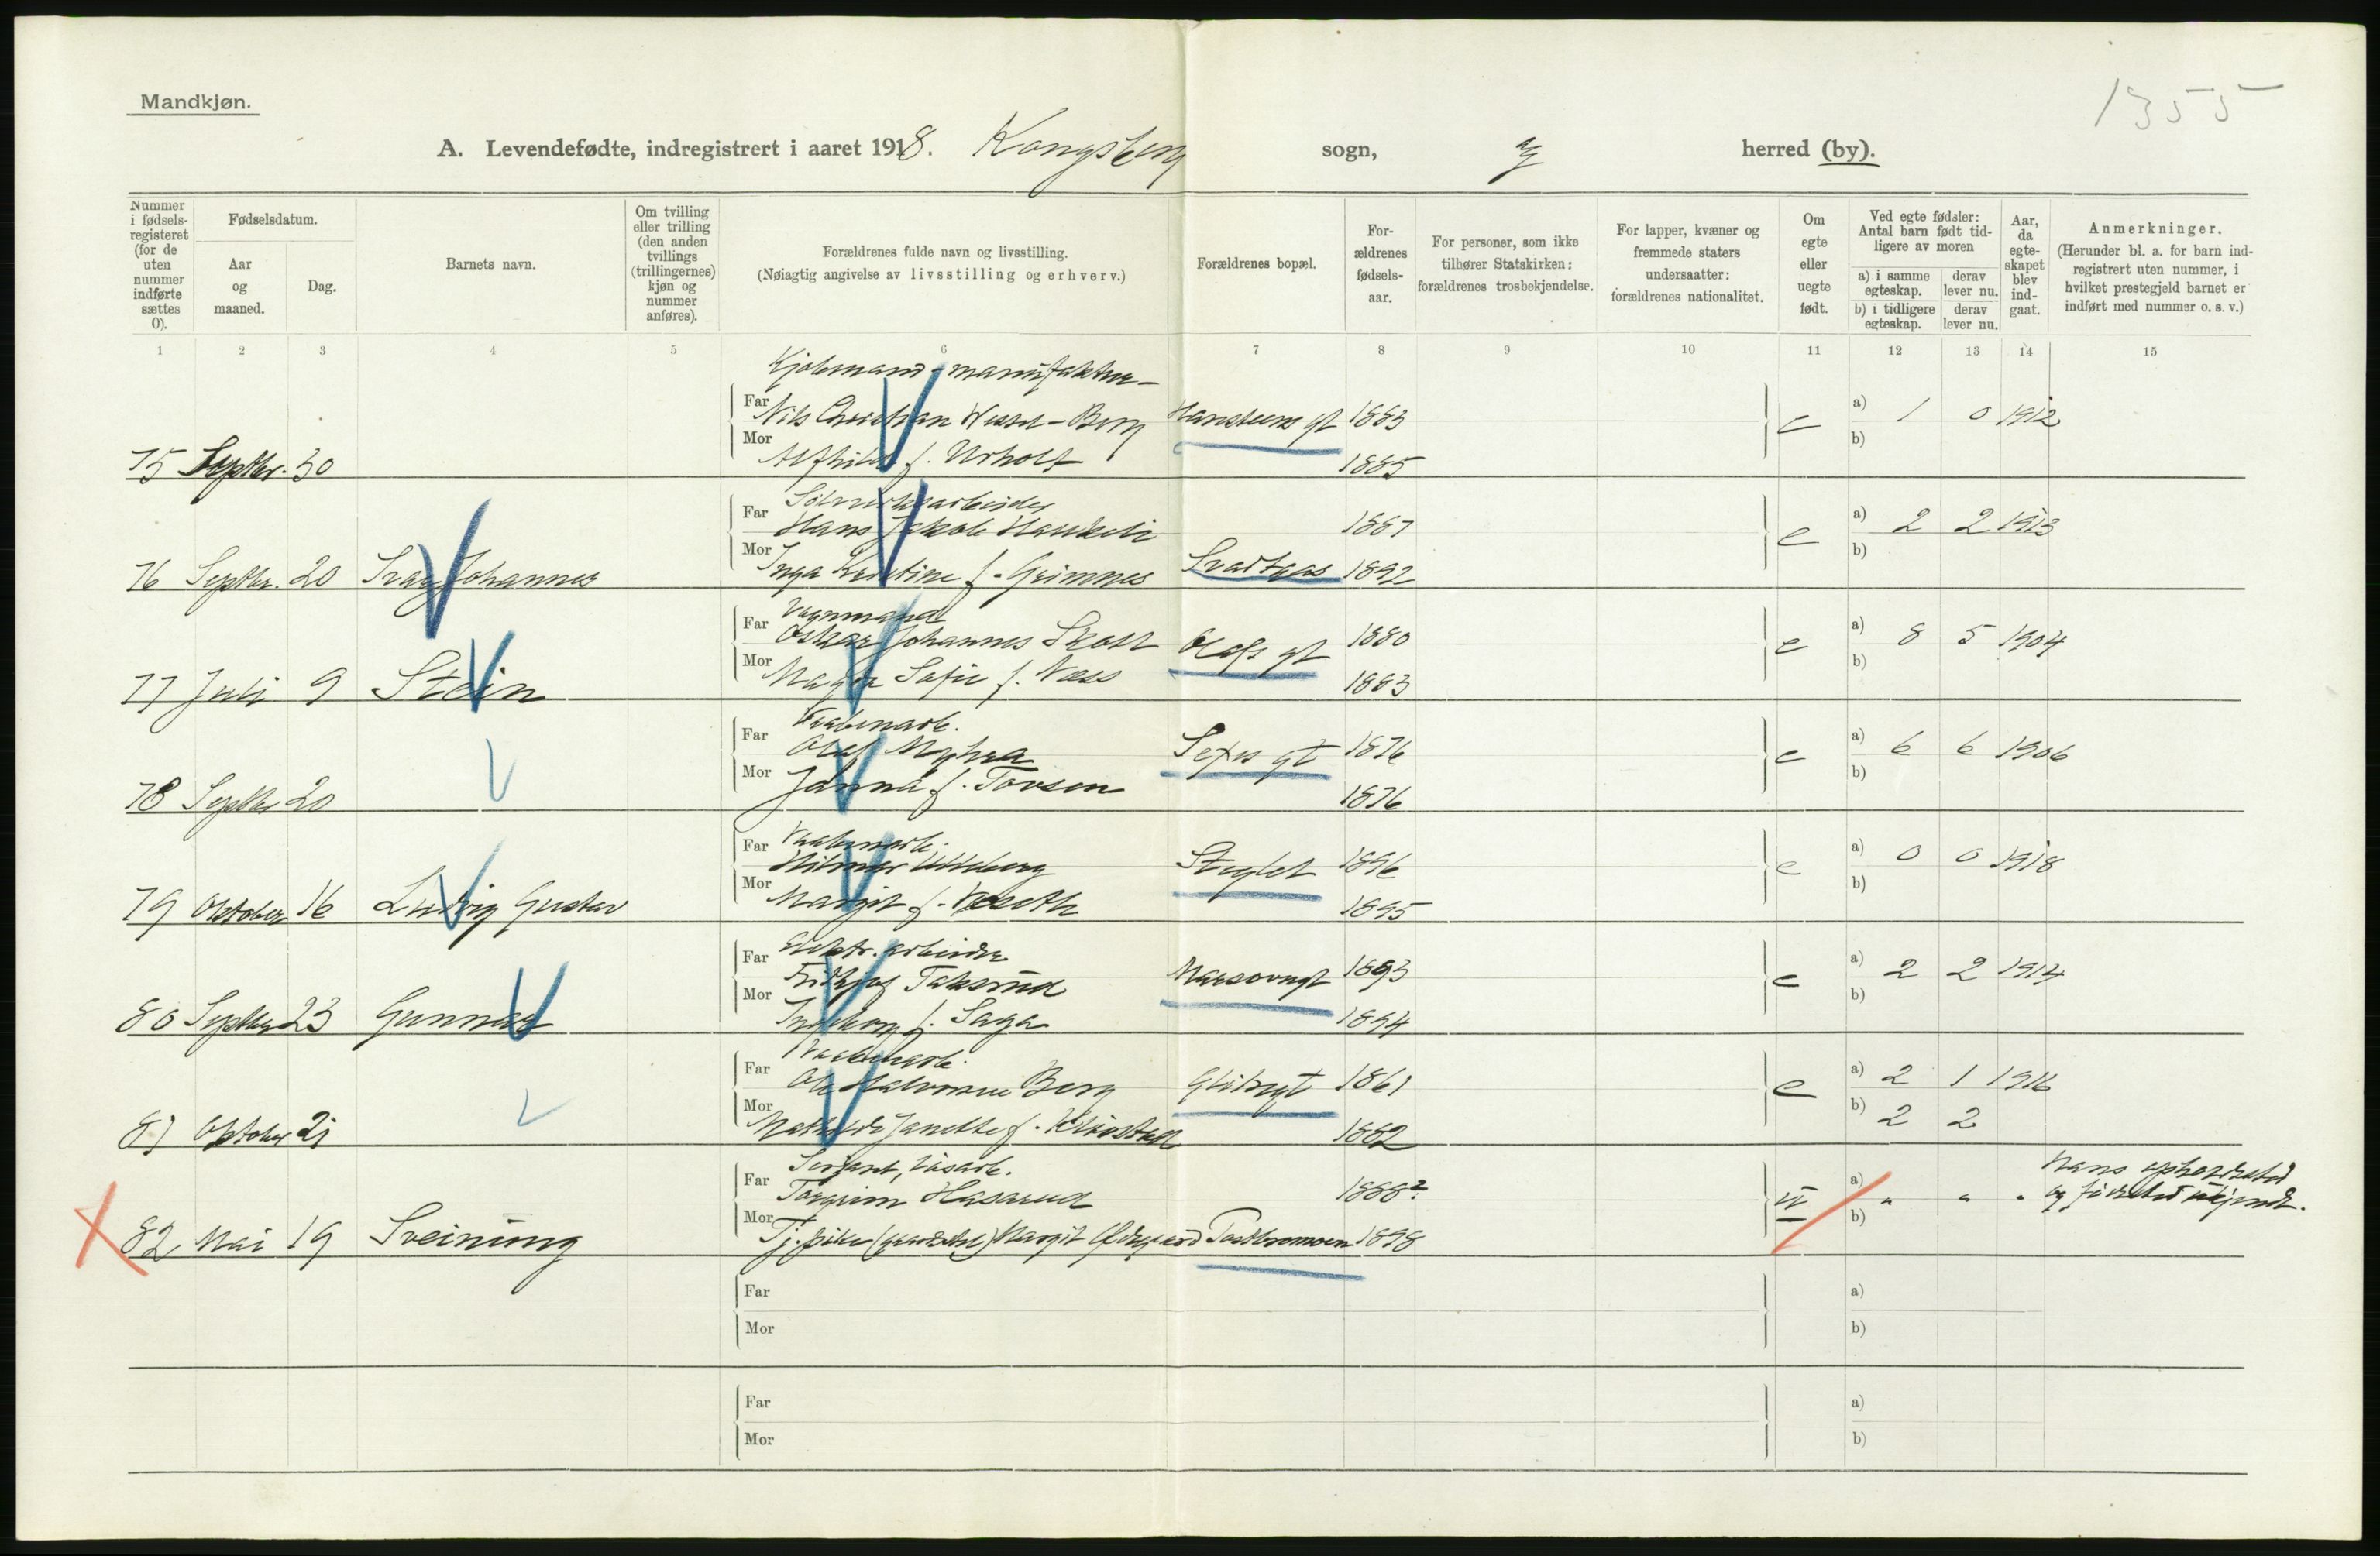 Mandkjøn.
1355
A. Levendefødte, indregistrert i aaret 1918. Kongsberg sogn, herred (by).
Nummer i fødselsregisteret (for de uten nummer indførte sættes 0).
Fødselsdatum.
Aar og maaned.
Dag.
Barnets navn.
Om tvilling eller trilling (den anden tvillings (trillingernes) kjøn og nummer anføres).
Forældrenes fulde navn og livsstilling.
(Nøiagtig angivelse av livsstilling og erhverv.)
Forældrenes bopæl.
Forældrenes fødselsaar.
For personer, som ikke tilhører Statskirken: forældrenes trosbekjendelse.
For lapper, kvæner og fremmede staters undersaatter: forældrenes nationalitet.
Om egte eller uegte født.
Ved egte fødsler: Antal barn født tidligere av moren
a) i samme egteskap. derav lever nu.
b) i tidligere egteskap. derav lever nu.
Aar, da egteskapet blev indgaat.
Anmerkninger.
(Herunder bl. a. for barn indregistrert uten nummer, i hvilket prestegjeld barnet er indført med nummer o. s. v.)
1 2 3 4 5 6 7 8 9 10 11 12 13 14 15
Kjøbmand - manufaktur -
Far Nils Christian Wessel-Berg Hansteens gt 1883 e a) 1 0 1912
Mor Alfhild f. Urholt 1885 b)
75 Septbr. 30
Sølvverksarbeider
Far Hans Jakob Haukeli 1887 e a) 2 2 1913
Mor Inga Kristine f. Grimnes Svartaas 1892 b)
76 Septbr. 20 Svay Johannes
Vognmand
Far Oskar Johannes Skott Olafs gt 1880 e a) 8 5 1904
Mor Magda Sofie f. Næss 1883 b)
77 Juli 9 Stein
Vaabenarb.
Far Olaf Myhra gt 1876 e a) 6 6 1906
Mor Janna f. Torsen 1876 b)
78 Septbr 20
Vaabenarb.
Far Hilmar Ulleberg Steglet 1896 e a) 0 0 1918
Mor Margit f. 1895 b)
79 Oktober 16 Ludvig Gustav
Elektr. arbeider
Far Fridtjof Taksrud 1893 e a) 2 2 1914
Mor Ingeborg f. Saga 1894 b)
80 Septbr 23 Gunnar
Vaabenarb.
Far Ole Halvorsen Berg Glitregt 1861 e a) 2 1 1916
Mor Mathilde Janette f. 1882 b) 2 2
81 Oktober 21
Serjant,
Far Torgrim Hasarud 1888? u a) " " "
Mor Tj. pike Margit 1898 b)
82 Mai 19 Sveinung
Hans opholdssted
og
Far a)
Mor b)
Far a)
Mor b)